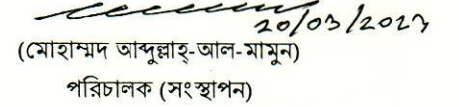 20/03/2023
(মোহাম্মদ আব্দুল্লাহ্-আল-মামুন)
পরিচালক (সংস্থাপন)